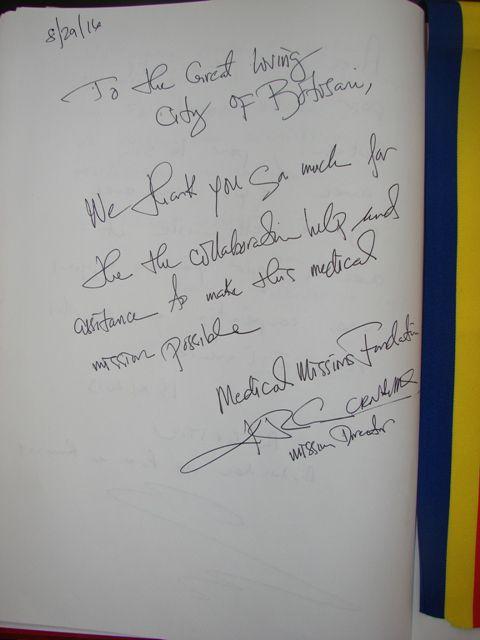 8/29/16
To the Great Loving
City of Botosani,
We thank you so much for
the the collaboration help and
assistance to make this medical
mission possible
Medical Missions Foundation
Mission Director